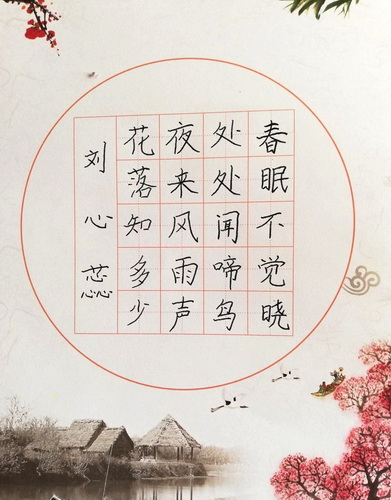 春眠不觉晓
处处闻啼鸟
夜来风雨声
花落知多少
刘心蕊